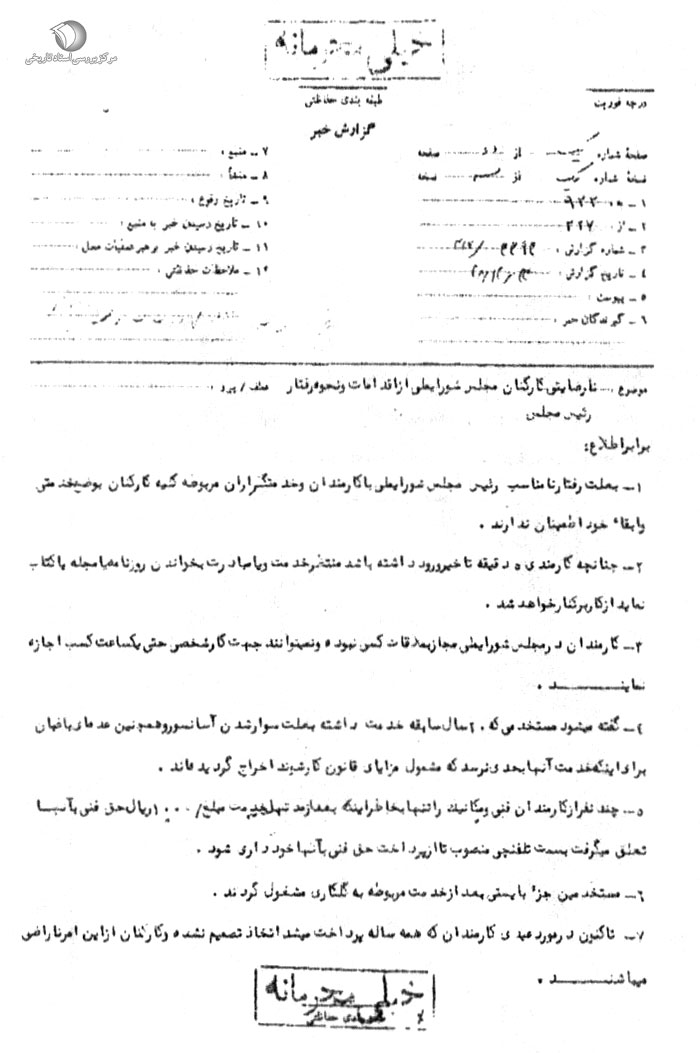 مرکز بررسی اسناد تاریخی
خیلی محرمانه
طبقه بندی حفاظتی
درجه فوریت
گزارش خبر
صفحهٔ شماره یک از دو صفحه
نسخهٔ شماره یک از نسخه
۱ – به ۹۲۲
۲ – از ۲۲۷
۳ – شماره گزارش :
۴ – تاریخ گزارش :
۵ – پیوست :
۶ – گیرندگان خبر :
۷ – منبع :
۸ – منشأ :
۹ – تاریخ وقوع :
۱۰ – تاریخ رسیدن خبر به منبع :
۱۱ – تاریخ رسیدن خبر به رهبر عملیات محل :
۱۲ – ملاحظات حفاظتی :
موضوع : نارضایتی کارکنان مجلس شورایملی از اقدامات و نحوه رفتار عطف / پیرو
رئیس مجلس
برابر اطلاع:
۱– بعلت رفتار نامناسب رئیس مجلس شورایملی با کارمندان وخدمتگزاران مربوطه کلیه کارکنان بوضع خدمتی
وابقاء خود اطمینان ندارند .
۲– چنانچه کارمندی ۵ دقیقه تاخیر ورود داشته باشد منتظر خدمت ویا مبادرت بخواندن روزنامه یا مجله یا کتاب
نماید از کار برکنار خواهد شد .
۳– کارمندان در مجلس شورایملی مجاز بملاقات کسی نبوده ونمیتوانند جهت کار شخصی حتی یکساعت کسب اجازه
نماینــــــد .
۴– گفته میشود مستخدمی که ۲۰ سال سابقه خدمت داشته بعلت سوار شدن آسانسور وهمچنین عده ای باغبان
برای اینکه خدمت آنها بحدی نرسد که مشمول مزایای قانون کار شوند اخراج گردیده اند .
۵– چند نفر از کارمندان فنی ومکانیک را تنها بخاطر اینکه بعد از مدتها خدمت مبلغ ۱۰۰۰/ ریال حق فنی بآنهـا
تعلق میگرفت بسمت تلفنچی منصوب تا از پرداخت حق فنی بآنها خودداری شود .
۶– مستخدمین جزء بایستی بعد از خدمت مربوطه به گلکاری مشغول گردند .
۷– تاکنون در مورد عیدی کارمندان که همه ساله پرداخت میشد اتخاذ تصمیم نشده وکارکنان از این امر ناراضی
میباشنـــــد .
خیلی محرمانه
طبقه بندی حفاظتی